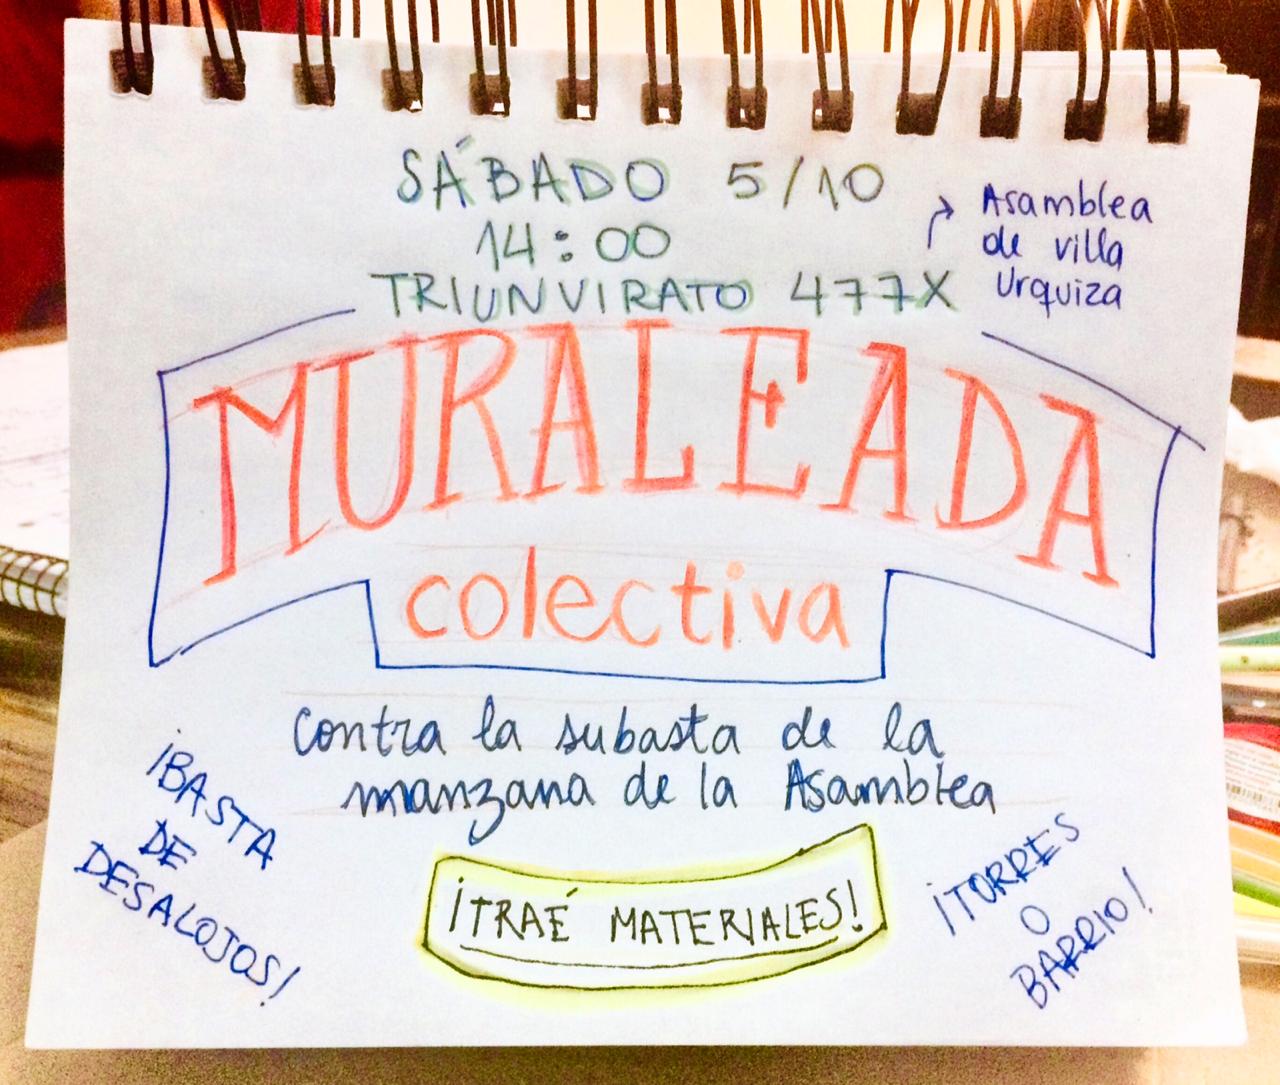 SÁBADO 5/10
14:00
TRIUNVIRATO 477X
Asamblea
de villa
Urquiza
MURALEADA
colectiva
contra la subasta de la
manzana de la Asamblea
¡BASTA
DE
DESALOJOS!
¡TRAÉ MATERIALES!
¡TORRES
O
BARRIO!